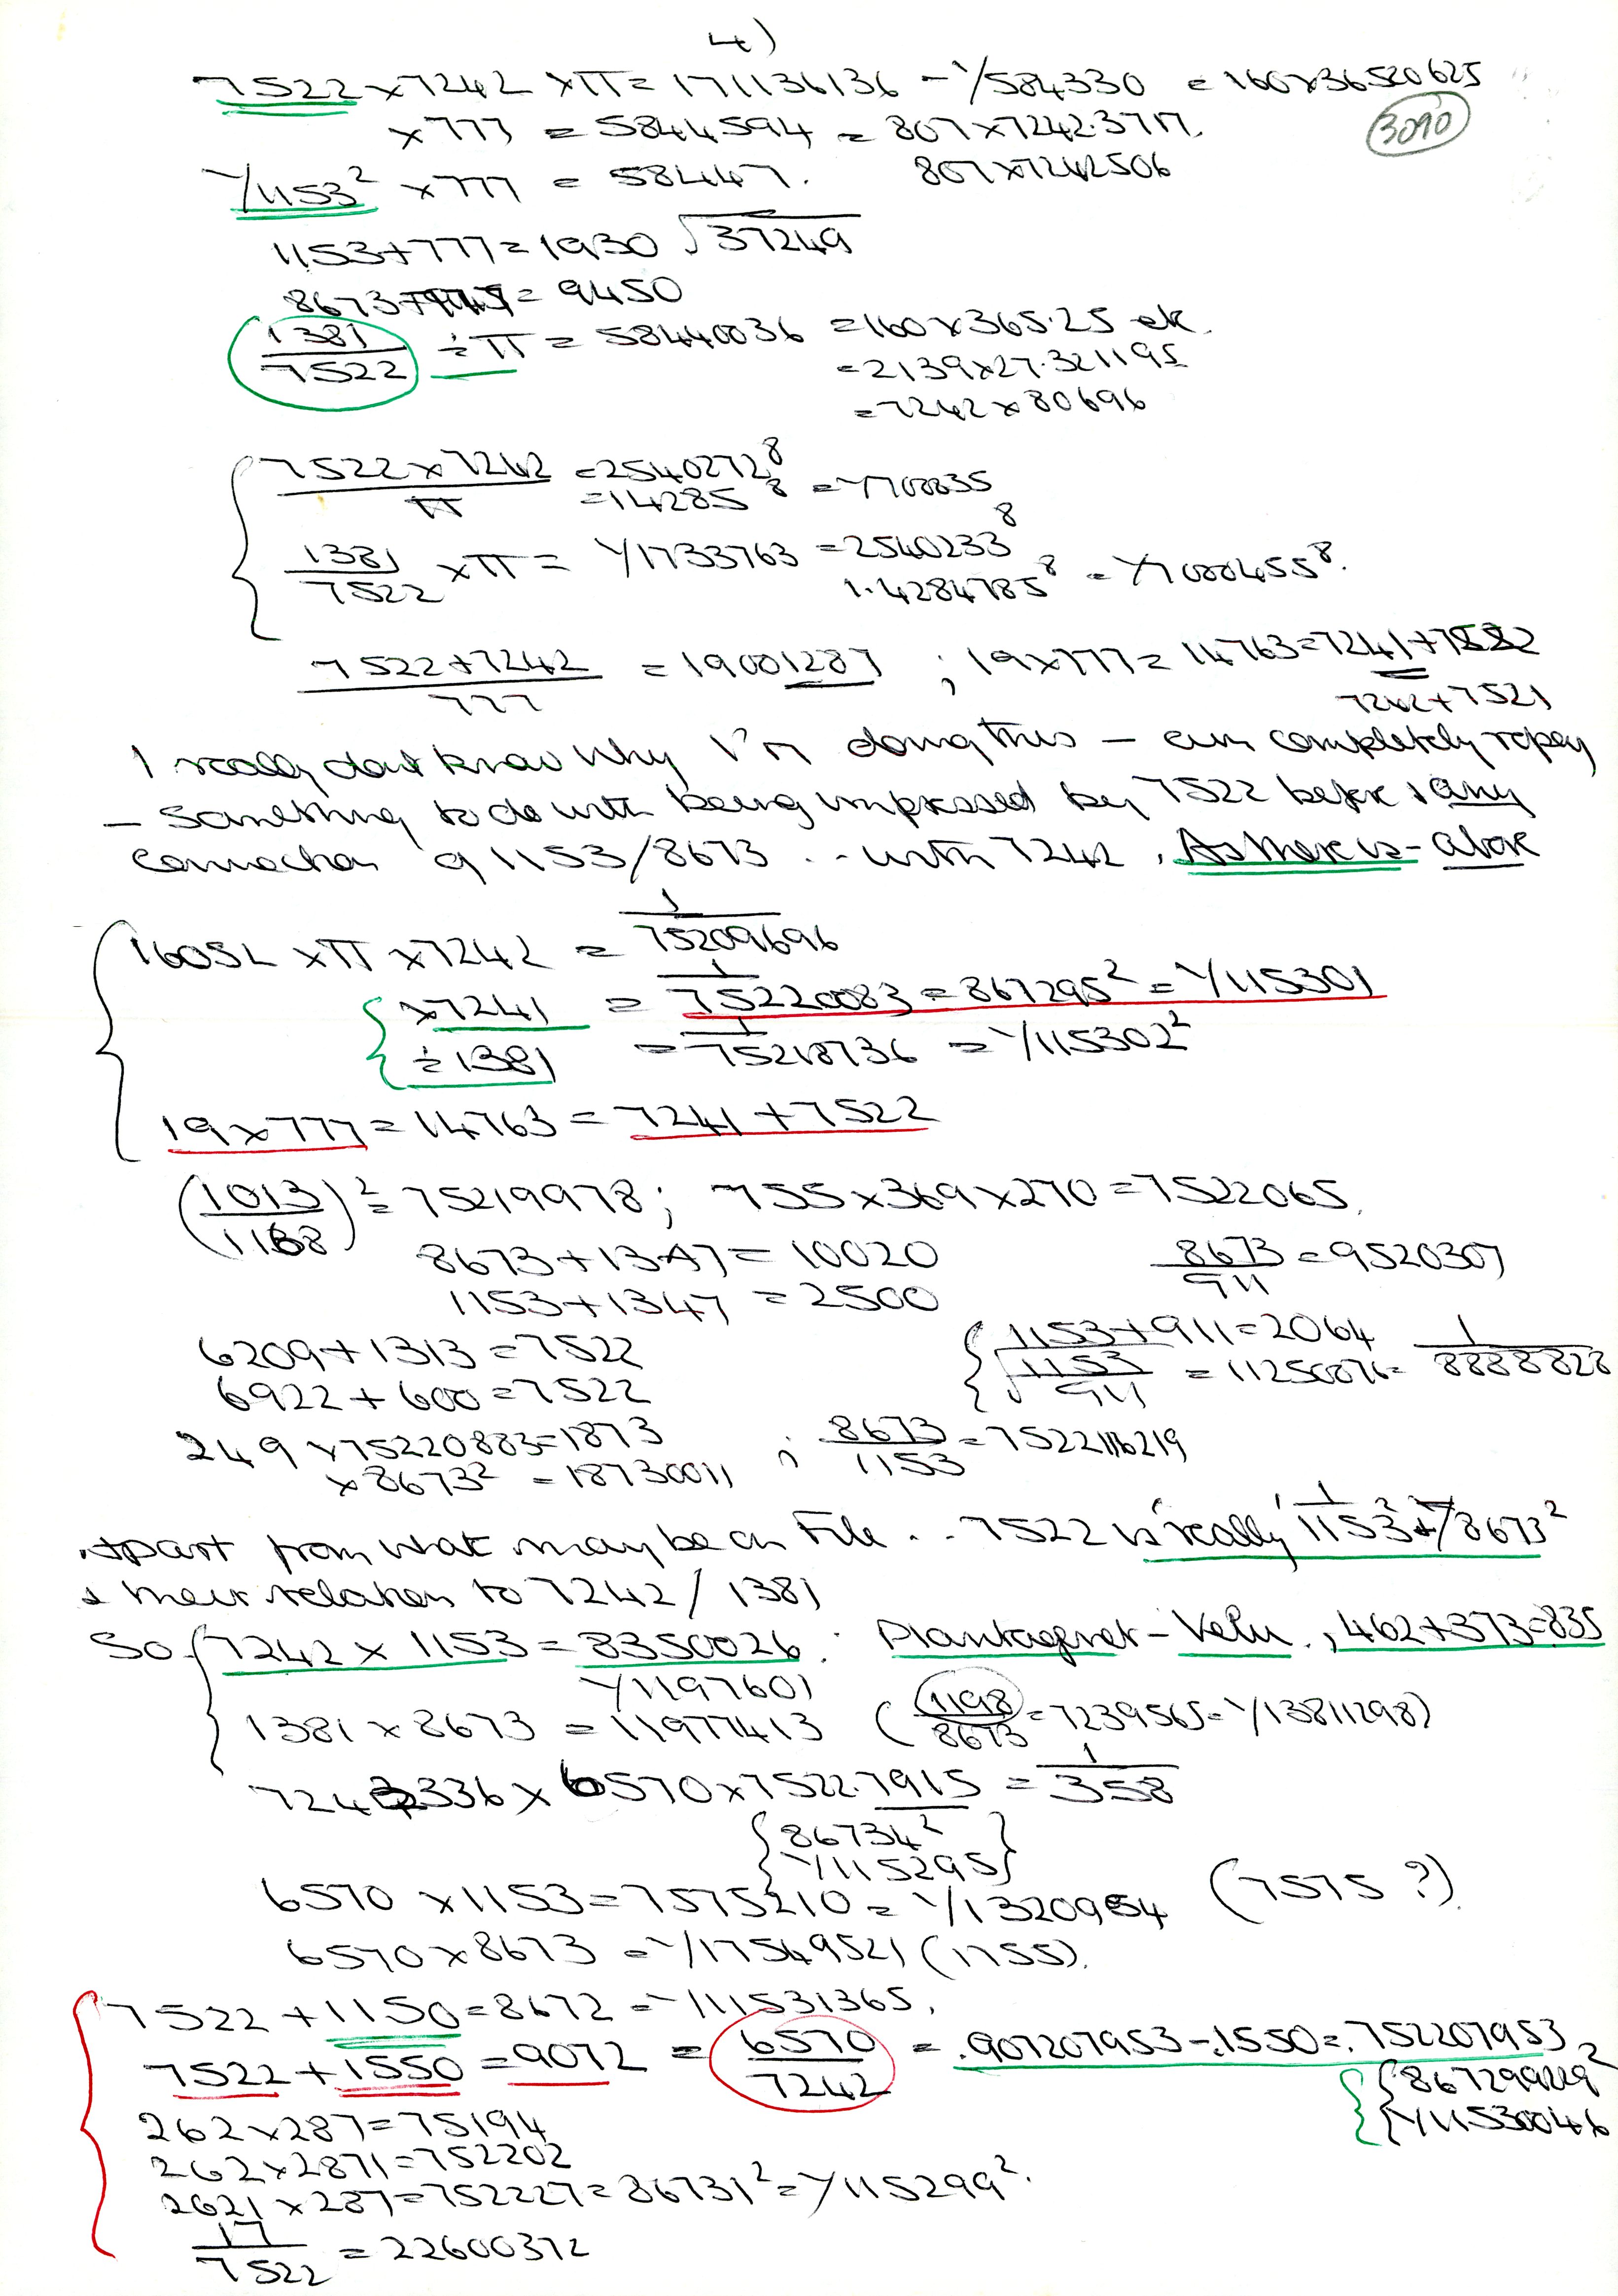 4)
7522 x 7242 x π = 171136136 - 1/584330 = 160 x 36520625
3090
x 777 = 5844594 = 807 x 7242.3717.
1/1153² x 777 = 58447. 807 x 7242506
1153 + 777 = 1930 √37249
8673 + = 9450
1381/7522 ÷ π = 58440036 = 160 x 365.25 etc.
= 2139 x 27.321195
= 7242 x 80696
7522 x 7242 / π = 2540272⁸ = 14285⁸ = 1/700035
1381/7522 x π = 1/1733763 = 2540233⁸ 1.4284785⁸ = 1/7000455⁸.
7522 + 7242 / 777 = 19001287 ; 19 x 777 = 14763 = 7241 + 7522
7242 + 7521
I really dont know why I'm doing this - am completely ropey
- Something to do with being impressed by 7522 before & any
connection of 1153/8673 .. with 7242. As there is - above
16052 x π x 7242 = 1/75209696
x 7241 = 1/75220083 = 867295² = 1/115301
÷ 1381 = 1/75218736 = 1/115302²
19 x 777 = 14763 = 7241 + 7522
(1013/1168)² = 75219978 ; 755 x 369 x 270 = 7522065.
8673 + 1347 = 10020 8673/911 = 9520307
1153 + 1347 = 2500
6209 + 1313 = 7522 1153 + 911 = 2064
6922 + 600 = 7522 √1153/911 = 11250876 = 1/8888828
249 x 75220883 = 1873 ; 8673/1153 = 7522116219
x 8673² = 18730011
Apart from what may be on File .. 7522 is 'really' 1/1153² + / 8673²
& their relation to 7242 / 1381
So 7242 x 1153 = 8350026 : Plantagenet - Velu., 462 + 373 = 835
1/1197601
1381 x 8673 = 11977413 (1198/8673 = 7239565 = 1/13811298)
7242336 x 6570 x 7522.7915 = 1/358
86734²
1/115295
6570 x 1153 = 7575210 = 1/13209654 (7575 ?).
6570 x 8673 = 1/17549521 (1755).
7522 + 1150 = 8672 = 1/11531365.
7522 + 1550 = 9072 = 6570/7242 = .907207953 - .1550 = .752207953
867299229²
1/11530046
262 x 287 = 75194
262 x 2871 = 752202
2621 x 287 = 752227 = 86731² = 1/115299².
17/7522 = 22600372